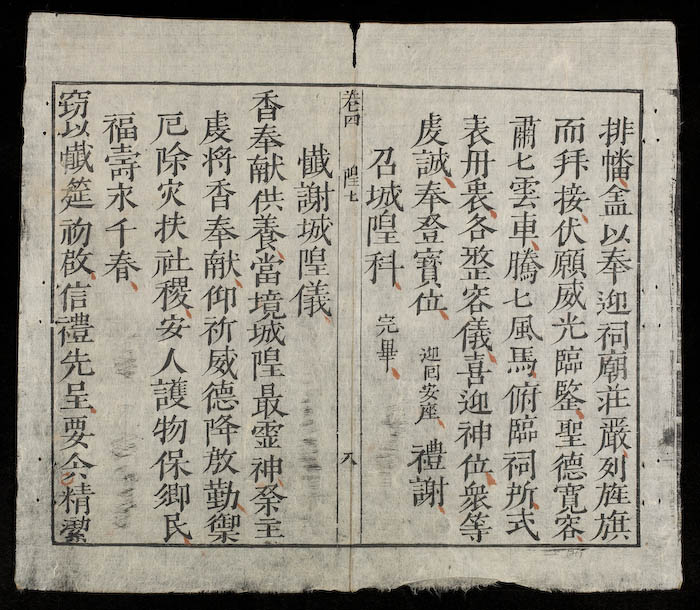 排幡盖以奉迎祠廟荘嚴列旌旗
而拜接伏願威光臨鑒聖德寬容
肅匕雲車騰匕風馬俯臨祠所式
表丹衷各整容儀喜迎神位衆等
虔誠奉登寶位 迎回安座 禮謝
召城隍科 完畢
卷四 隍七 八
懺謝城隍儀
香奉献供養當境城隍最霊神祭主
虔将香奉献仰祈威德降敇勤禦
厄除灾扶社稷安人護物保鄉民
福壽永千春
窃以懺筵初啟信禮先呈要精潔